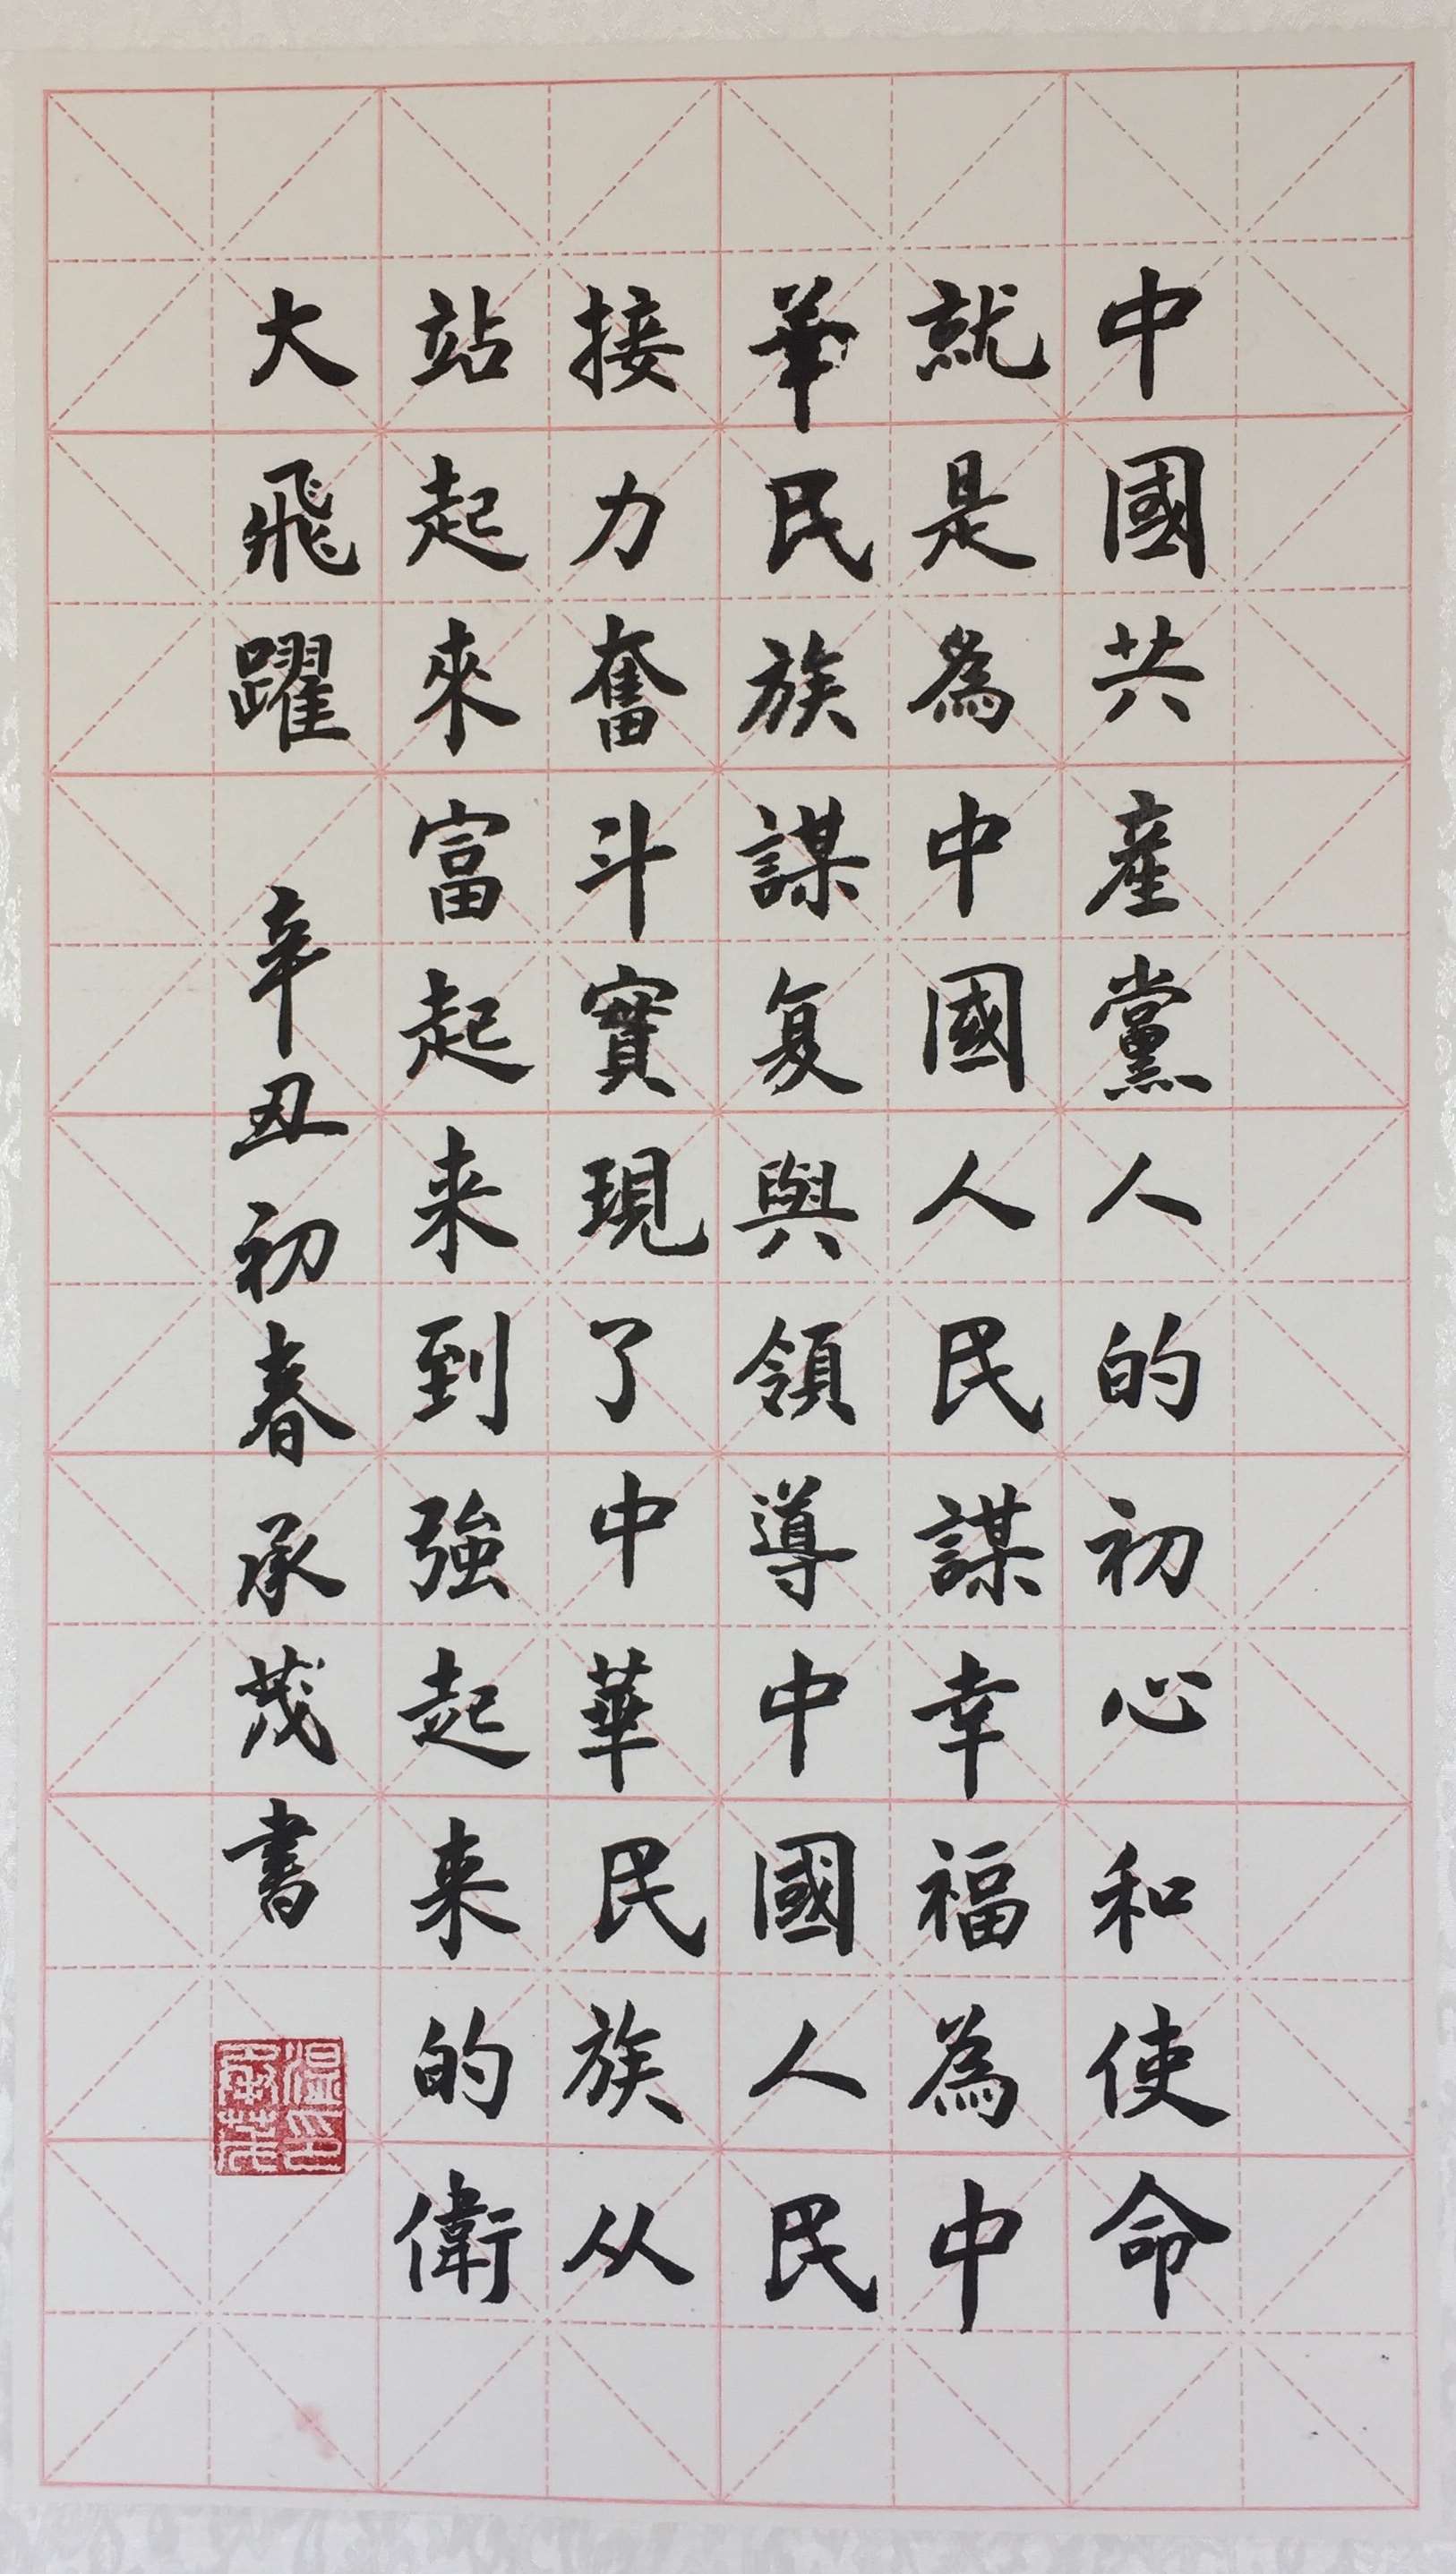 中國共產黨人的初心和使命
就是為中國人民謀幸福為中
華民族謀复與領導中國人民
接力奮斗實現了中華民族从
站起來富起来到強起来的衛
大飛躍
辛丑初春承茂書
溫印
承茂